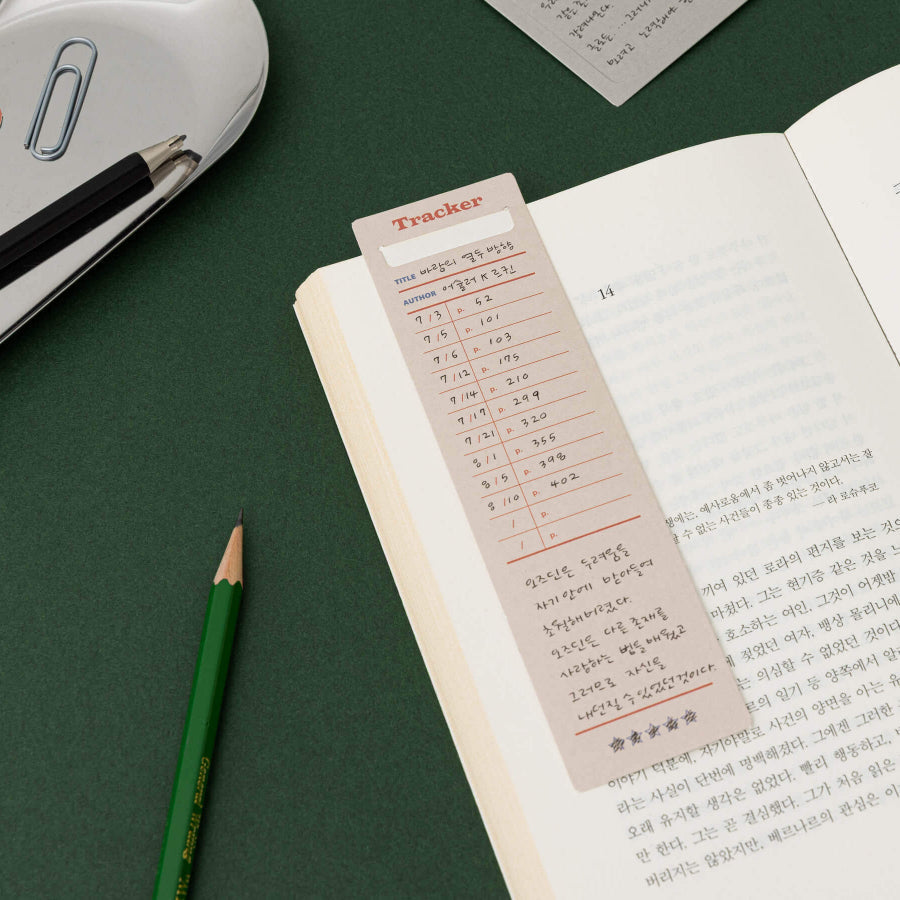 Tracker
TITLE 바람의 열두 방향
AUTHOR 어슐러 K 르귄
7 / 3 p. 52
7 / 5 p. 101
7 / 6 p. 103
7 / 12 p. 175
7 / 14 p. 210
7 / 17 p. 299
7 / 21 p. 320
8 / 1 p. 355
8 / 5 p. 398
8 / 10 p. 402
/ p.
/ p.
오즈딘은 두려움을
자기 안에 받아들여
초월해버렸다.
오즈딘은 다른 존재를
사랑하는 법을 배웠고
그러므로 자신을
내던질 수 있었던 것이다.
14
생에는, 예사로움에서 좀 벗어나지 않고서는 잘
수 없는 사건들이 종종 있는 것이다.
— 라 로슈푸코
끼여 있던 로라의 편지를 보는 것으
마쳤다. 그는 현기증 같은 것을 느
호소하는 여인, 그것이 어젯밤
짖었던 여자, 뱅상 몰리니에
는 의심할 수 없었던 것이다
르의 일기 등 양쪽에서 알
이야기 덕분에, 자기야말로 사건의 양면을 아는 유
라는 사실이 단번에 명백해졌다. 그에겐 그러한
오래 유지할 생각은 없었다. 빨리 행동하고,
만 한다. 그는 곧 결심했다. 그가 처음 읽은
버리지는 않았지만, 베르나르의 관심은 이
General Writing